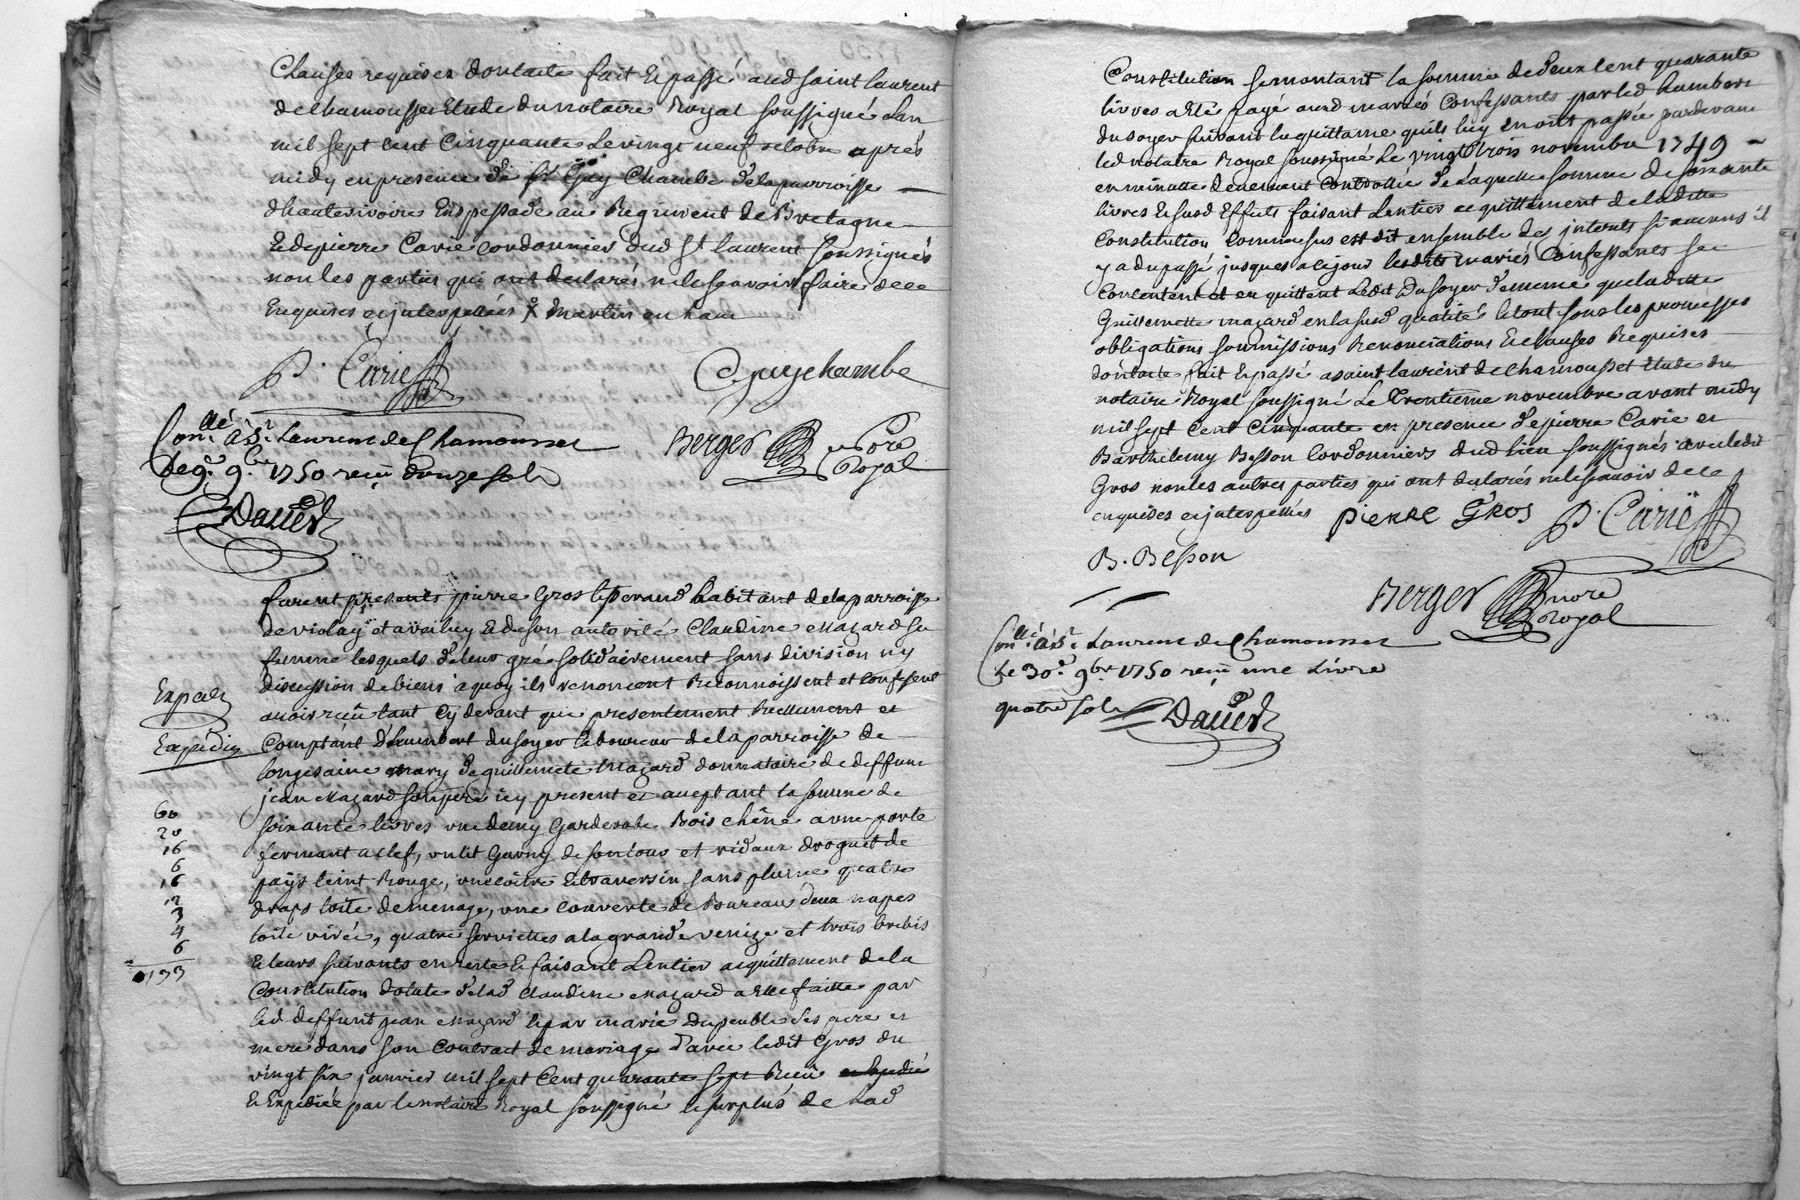 Clauses requises dont acte fait et passé aud saint laurent
de chamousset Etude du notaire Royal soussigné Lan
mil sept cent Cinquante Le vingt neuf octobre après
midy en presence de Sr Guy Chambe de la parroisse
dhauterivoire Enspessade au Regiment de Bretagne
Et de pierre Carie cordonnier dud St laurent soussignés
non les parties qui ont declarés ne le scavoir faire de ce
Enquises et jnterpellées
P. Carie
Guy chambe
Conllé à St Laurent de Chamousset
Le 9e 9bre 1750 reçu douze sols
Berger nore
Royal
Dauer
furent presents pierre Gros tisserand habitant de la parroisse
de violay et avec luy Et de son autorité Claudine Mazard sa
femme lesquels de leur gré solidairement sans division ny
discussion de biens a quoy ils renoncent Reconnoissent et confessent
avoir reçu tant cy devant que presentement Reellement et
Comptant d'humbert dusoyer laboureur de la parroisse de
longesaine mary de guillemete Mazard donnataire de deffunt
jean Mazard son pere icy present et acceptant la somme de
soixante livres un demy Garderobe Bois chêne a une porte
fermant a clef, un lit Garny de son tour et rideaux droguet de
païs teint Rouge, une coitre Et traversin sans plume quatre
draps toile de menage, une couverte de Bureau deux napes
toile virée, quatre serviettes a la grande venize et trois brebis
Et leurs suivants en reste Et faisant Lentier acquittement de la
Constitution dotale de lad Claudine Mazard a Elle faitte par
led deffunt jean Mazard et par marie Dupeuble ses pere et
mere dans son contract de mariage d'avec ledit Gros du
vingt six janvier mil sept cent quarante sept Reçu
Et Expediée par le notaire Royal soussigné le surplus de lad
Expedié
Expédié
60
20
16
6
16
12
3
4
6
0133
Constitution se montant la somme de deux cent quarante
livres a Eté payé aud mariés Confessants par led humbert
du soyer suivant la quittance quils luy en ont passée pardevant
led notaire Royal soussigné Le vingt trois novembre 1749
en minutte deuement Controllée de laquelle somme de soixante
livres Et susd Effets faisant Lentier acquittement de laditte
Constitution Comme sus est dit ensemble des jnterets si aucuns il
y a du passé jusques a ce jour lesdits mariés Confessants se
Contentent et en quittent Ledit Dusoyer de meme que laditte
Guillemette mazard en la susd qualité le tout sous les promesses
obligations soumissions Renonciations Et clauses Requises
dont acte fait Et passé a saint laurent de chamousset Etude du
notaire Royal soussigné Le Trentieme novembre avant midy
mil sept Cent Cinquante en presence de pierre Carie et
Barthelemy Besson Cordonniers dud lieu soussignés avec ledit
Gros non les autres parties qui ont declarés ne le scavoir de ce
enquises et jnterpellées pierre Gros P. Carie
B. Besson
Berger nore
Royal
Conllé à St Laurent de Chamousset
Le 30e 9bre 1750 reçu une Livre
quatre sols Dauer